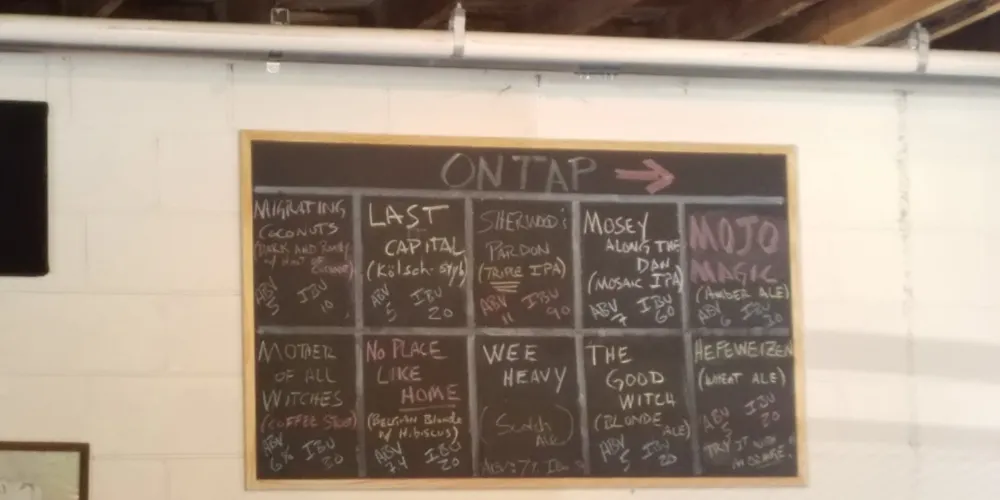 ON TAP →
MIGRATING
COCONUTS
ABV 5 IBU 10
LAST
CAPITAL
(Kölsch-style)
ABV 5 IBU 20
SHERWOOD'S
PARDON
(TRIPLE IPA)
ABV 11 IBU 90
MOSEY
ALONG THE
DAN
(MOSAIC IPA)
ABV 7 IBU 60
MOJO
MAGIC
(AMBER ALE)
ABV 6 IBU 30
MOTHER
OF ALL
WITCHES
(COFFEE STOUT)
ABV IBU 30
NO PLACE
LIKE
HOME
(BELGIAN Blonde
w/ HIBISCUS)
ABV 7.4 IBU 20
WEE
HEAVY
(Scotch
Ale)
ABV: 7%
THE
GOOD
WITCH
(BLONDE
ALE)
ABV 5 IBU 20
HEFEWEIZEN
(WHEAT ALE)
ABV 5 IBU 20
TRY IT WITH